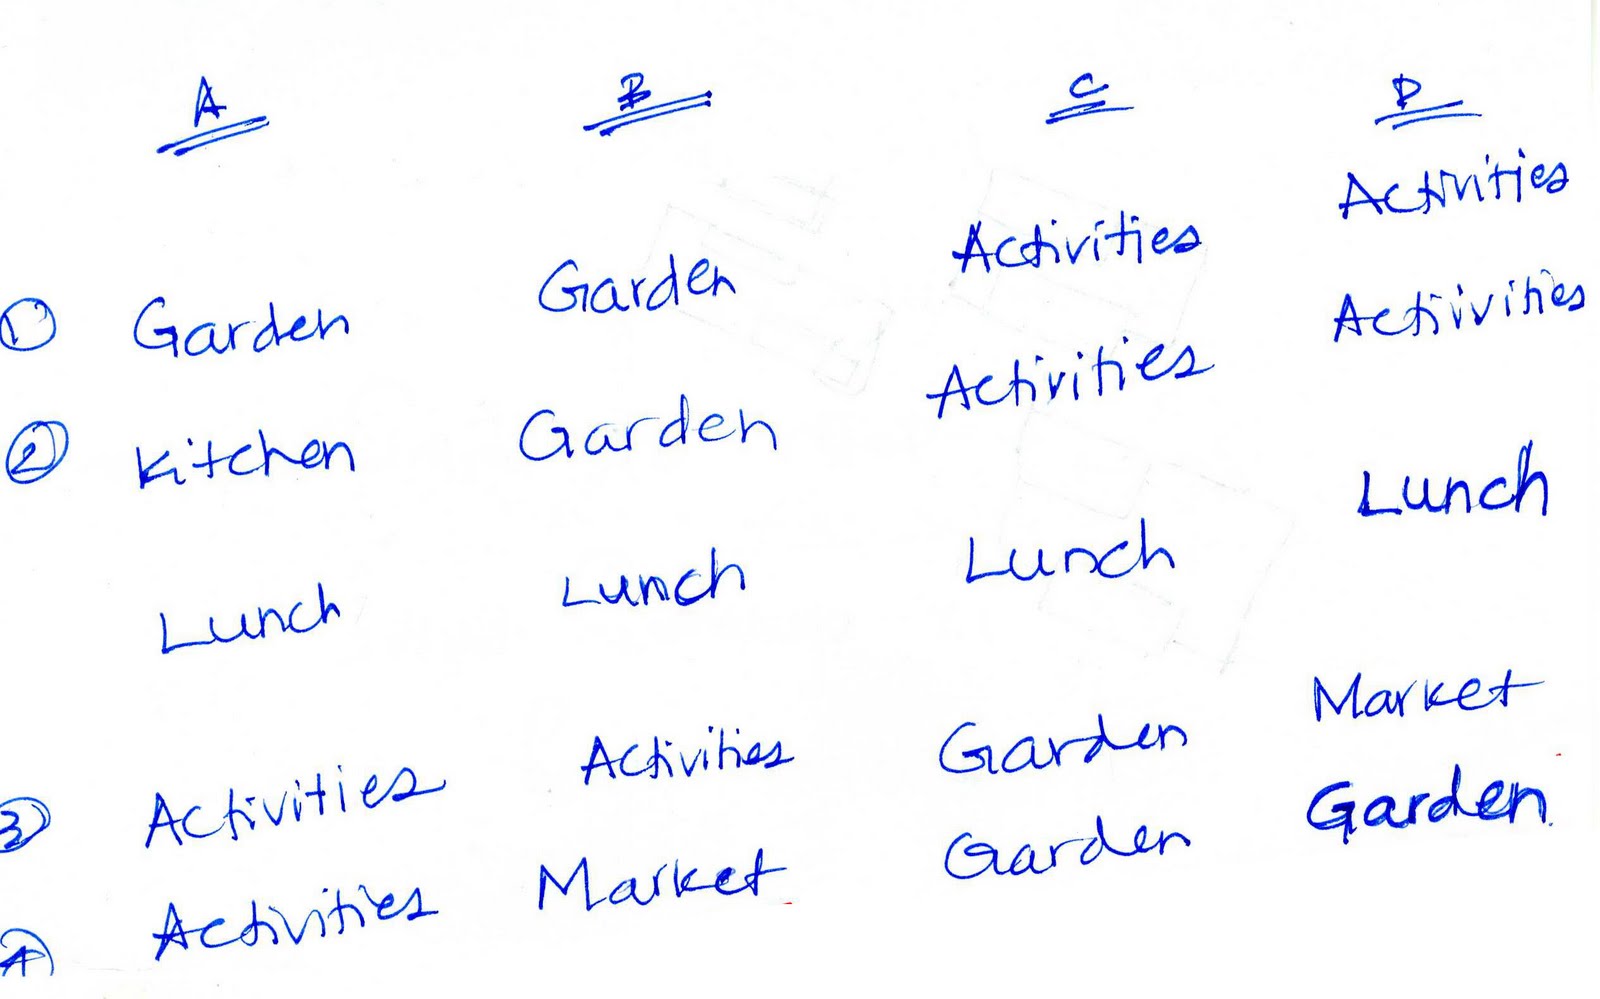 A B C D
① Garden Garden Activities Activities
② Kitchen Garden Activities Actiivities
Lunch Lunch Lunch Lunch
③ Activities Activities Garden Market
④ Activities Market Garden Garden